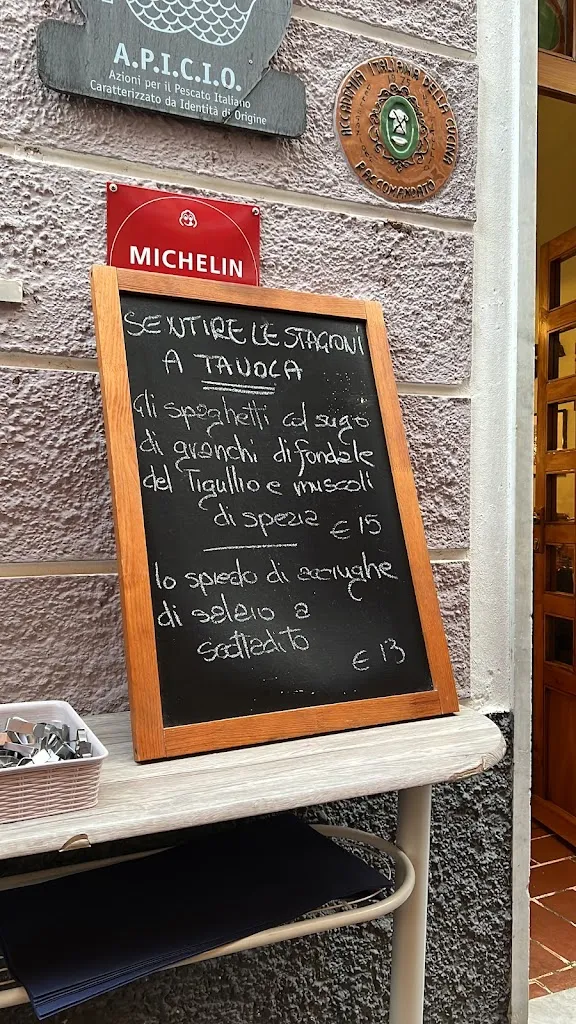 A.P.I.C.I.O.
Azioni per il Pescato Italiano
Caratterizzato da Identità di Origine
ACCADEMIA ITALIANA DELLA CUCINA
RACCOMANDATO
MICHELIN
SENTIRE LE STAGIONI
A TAVOLA
Gli spaghetti col sugo
di granchi di fondale
del Tigullio e muscoli
di spezia € 15
lo spiedo di acciughe
di salaio a
scottadito
€ 13